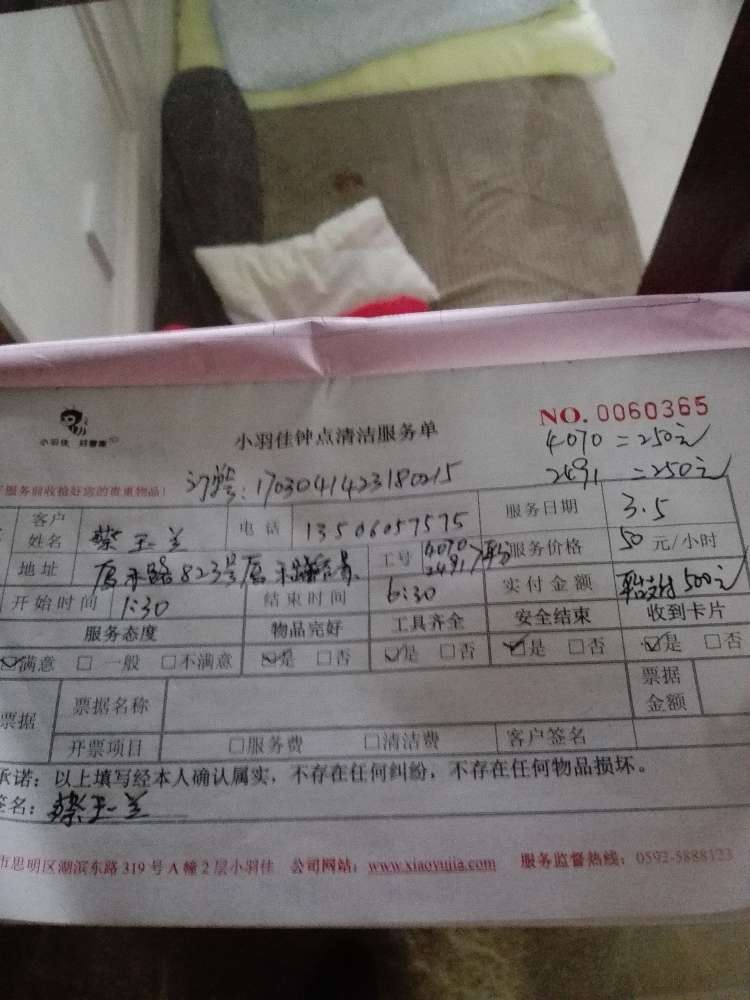 小羽佳 好管家
小羽佳钟点清洁服务单
NO. 0060365
4070 = 250元
2491 = 250元
服务前收检好您的贵重物品!
订单号: 1703041423180215
客户姓名 蔡玉兰 电话 13506057575 服务日期 3.5
地址 823号 工号 4070 2491 服务价格 50 元/小时
开始时间 1:30 结束时间 6:30 实付金额 平台支付 500元
服务态度 物品完好 工具齐全 安全结束 收到卡片
☑满意 □一般 □不满意 ☑是 □否 ☑是 □否 ☑是 □否 ☑是 □否
票据 票据名称 票据金额
开票项目 □服务费 □清洁费 客户签名
承诺: 以上填写经本人确认属实,不存在任何纠纷,不存在任何物品损坏。
签名: 蔡玉兰
市思明区湖滨东路 319 号 A 幢 2 层小羽佳 公司网站: www.xiaoyujia.com 服务监督热线: 0592-5888123